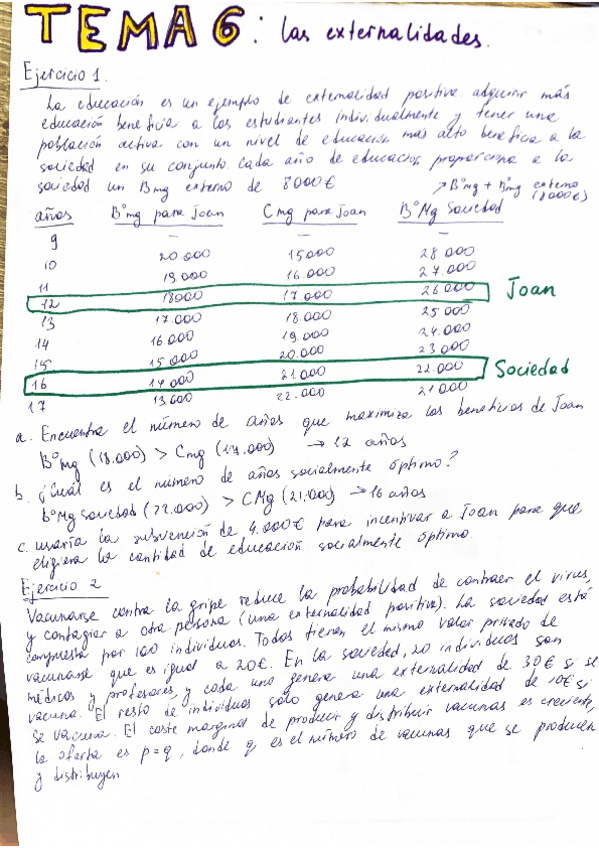 TEMA 6: las externalidades.
Ejercicio 1.
La educación es un ejemplo de externalidad positiva adquirir más
educación beneficia a los estudiantes individualmente y tener una
población activa con un nivel de educación más alto beneficia a la
sociedad en su conjunto. Cada año de educación proporciona a la
sociedad un Bmg externo de 8000€
↗ Bºmg + Bºmg externo (8000€)
años Bºmg para Joan Cmg para Joan BºMg Sociedad
9 – – –
10 20 000 15000 28 000
11 19 000 16 000 27 000
12 18000 17 000 26 000 Joan
13 17.000 18 000 25 000
14 16 000 19 000 24 000
15 15 000 20.000 23 000
16 14 000 21 000 22.000 Sociedad
17 13 000 22 000 21 000
a. Encuentra el número de años que maximiza los beneficios de Joan
Bºmg (18.000) > Cmg (17.000) → 12 años
b. ¿Cuál es el número de años socialmente óptimo?
BºMg sociedad (22.000) > CMg (21.000) → 16 años
c. usaría la subvención de 4.000€ para incentivar a Joan para que
eligiera la cantidad de educación socialmente óptimo.
Ejercicio 2
Vacunarse contra la gripe reduce la probabilidad de contraer el virus,
y contagiar a otra persona (una externalidad positiva). La sociedad está
compuesta por 100 individuos. Todos tienen el mismo valor privado de
vacunarse que es igual a 20€. En la sociedad, 20 individuos son
médicos y profesores, y cada uno genera una externalidad de 30€ si se
vacuna. El resto de individuos solo genera una externalidad de 10€ si
se vacuna. El coste marginal de producir y distribuir vacunas es creciente,
la oferta es p=q, donde q es el número de vacunas que se producen
y distribuyen